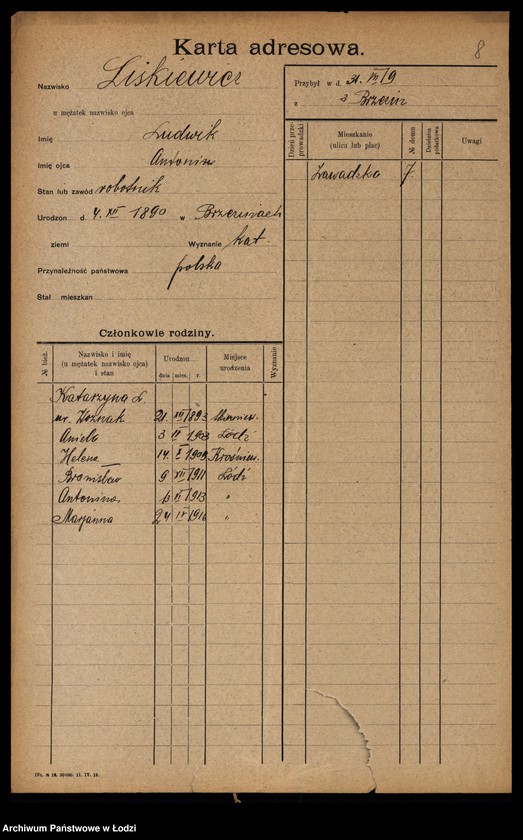 Karta adresowa.
8
Nazwisko Liskiewicz
u mężatek nazwisko ojca
Imię Ludwik
Imię ojca Antonin
Stan lub zawód robotnik
Urodzon d. 4. XII 1890 w Brzezinach
ziemi Wyznanie kat.
Przynależność państwowa polska
Stał. mieszkan
Przybył w d. 31. VII/9
z z Brzezin
Dzień przeprowadzki
Mieszkanie (ulica lub plac)
№ domu
Dzielnica podatkowa
Uwagi
Zawadzka 7
Członkowie rodziny.
№ bież.
Nazwisko i imię (u mężatek nazwisko ojca) i stan
Urodzon
dnia mies. r.
Miejsce urodzenia
Wyznanie
Katarzyna L.
ur. Woźniak 21 XII 1893
Aniela 3 1903 Łódź
Helena 14 X 1909
Bronisław 9 VII 1911 Łódź
Antonina 6 1913 "
Marjanna 24 IV 1916 "
Archiwum Państwowe w Łodzi